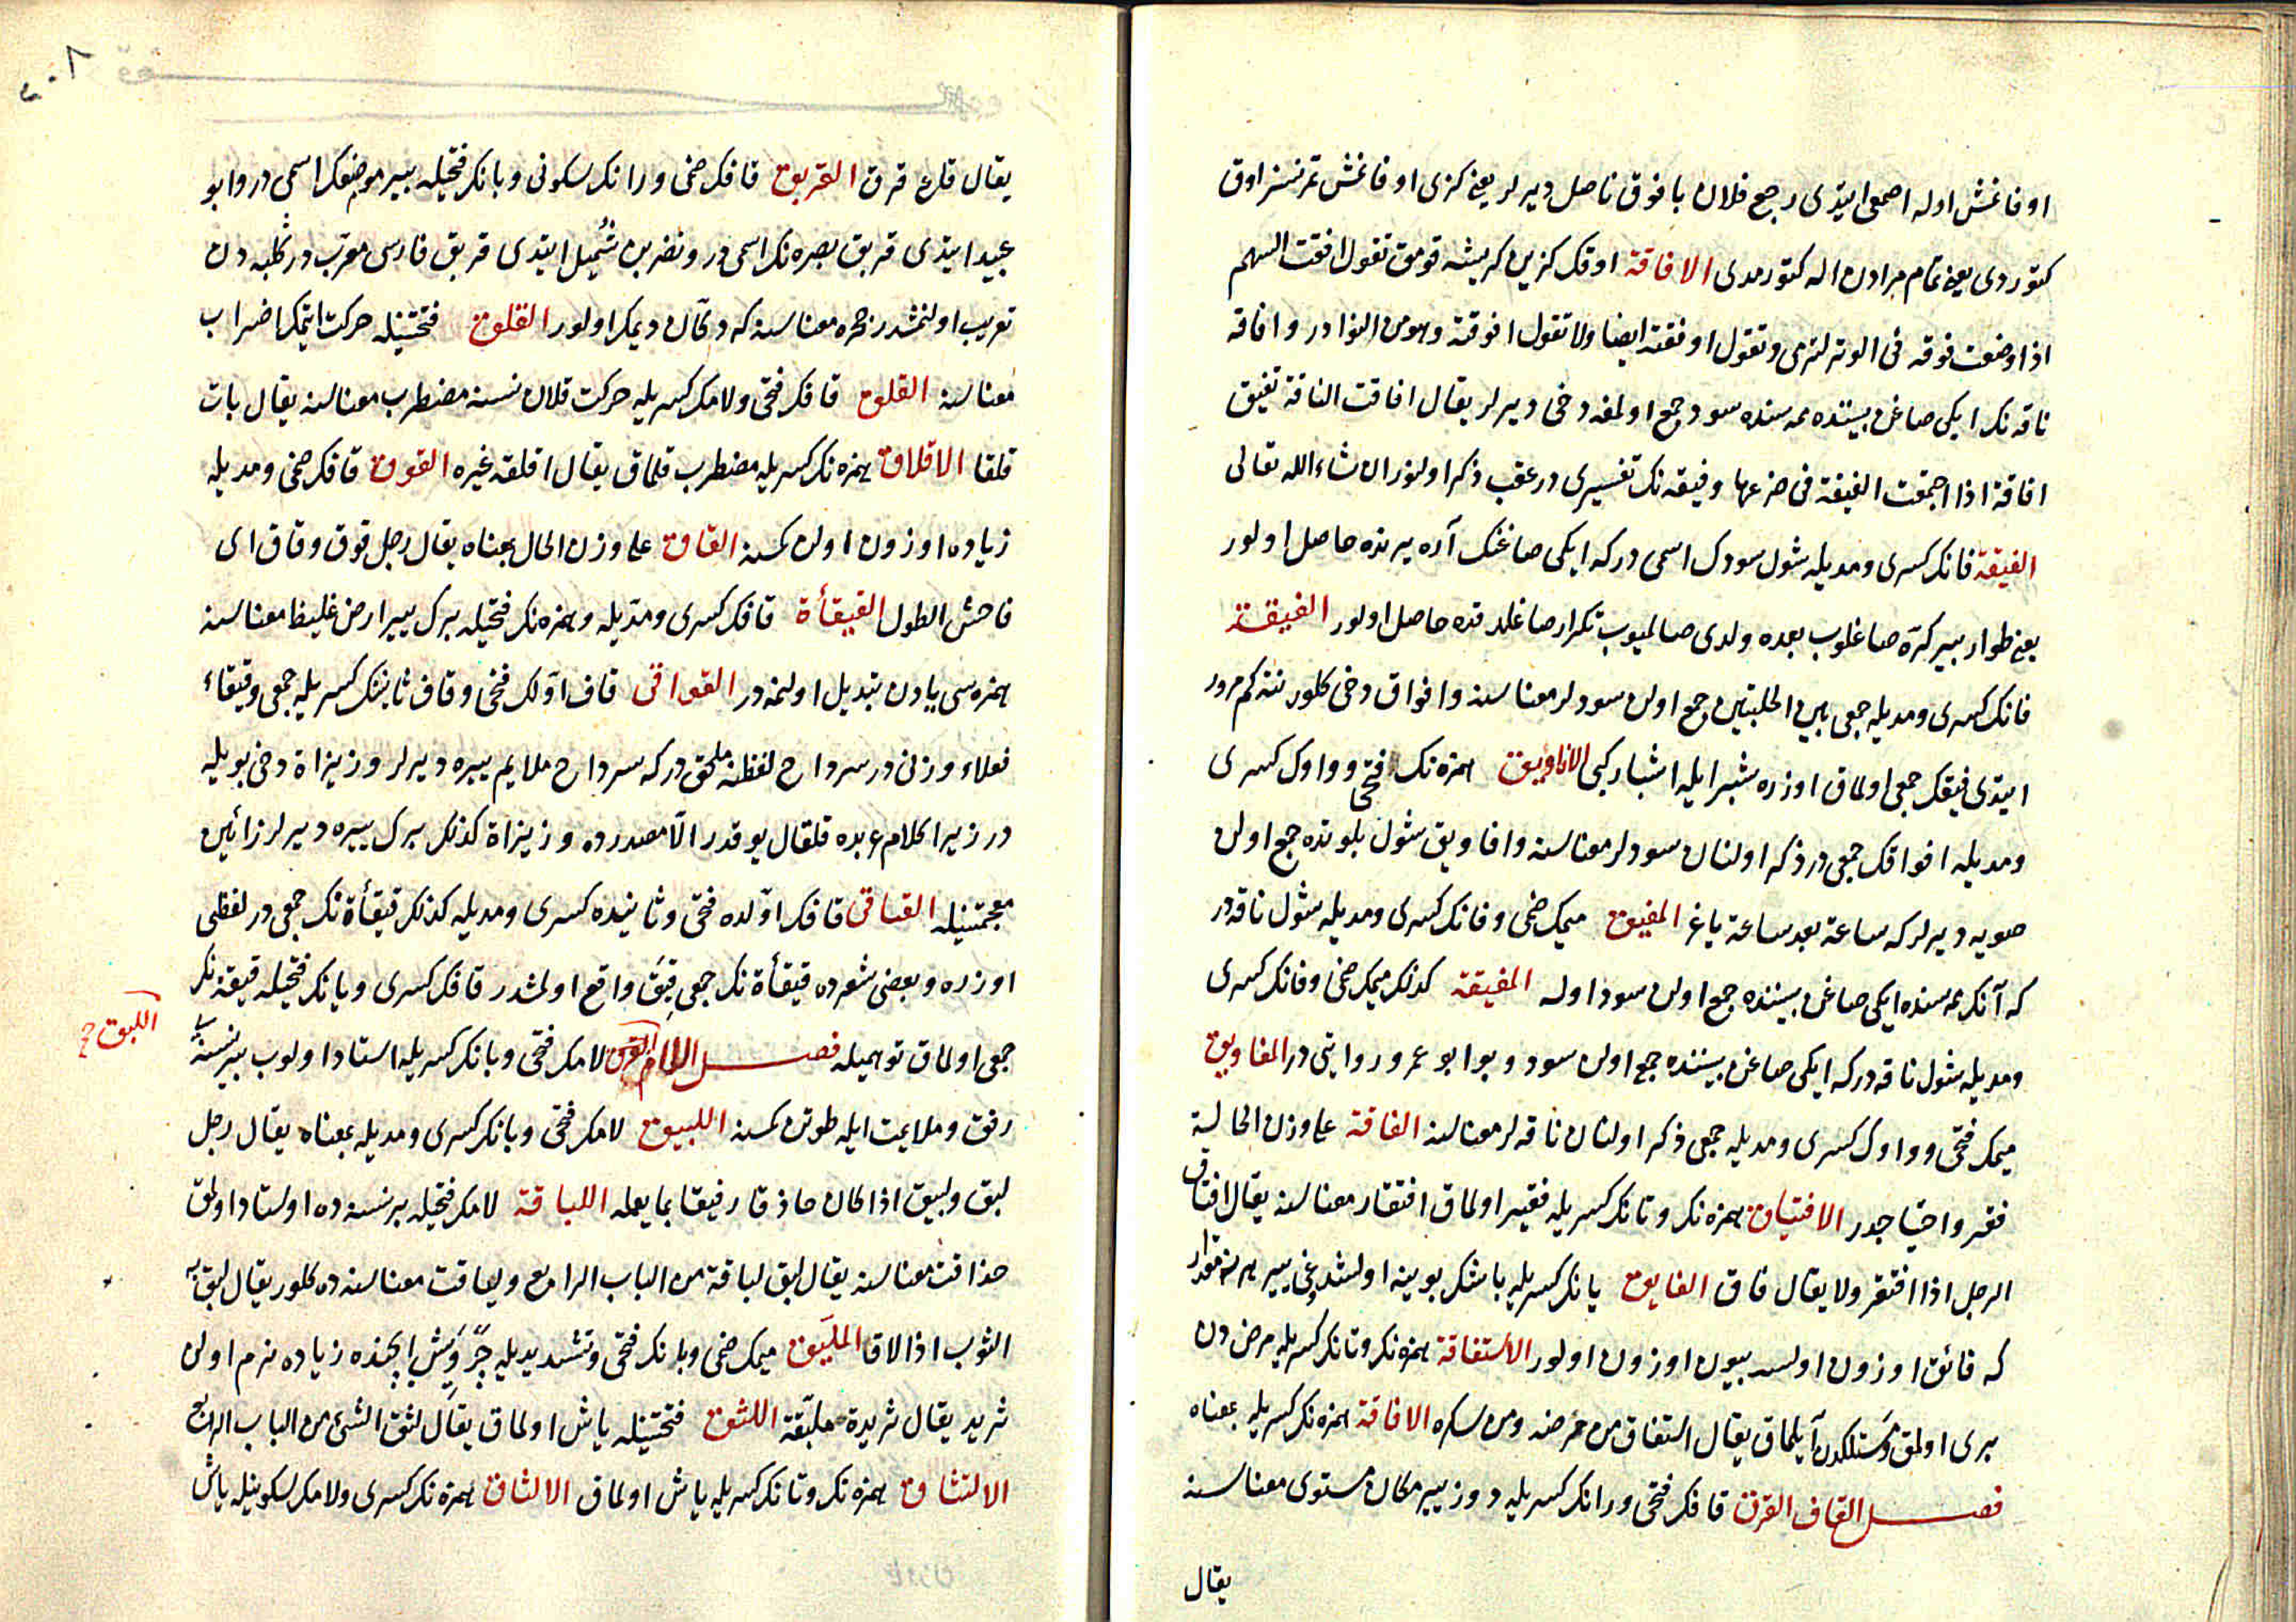 اوفانمش اوله اصمعى ايتدى رجع فلان بافوق ناصل ديرلر يعنى كزى اوفانمش تمرنسز اوق
كتوردى يعنى تمام مرادن اله كتورمدى الافاقة اوقك كزين كريشه قومق تقول افقت السهم
اذا وضعت فوقه فى الوتر لترمى وتقول اوفقته ايضا ولا تقول افوقته وهو من النوادر وافاقه
ناقه نك ايكى صاغن بيننده ممه سنده سود جمع اولمغه دخى ديرلر يقال افاقت الناقة تفيق
افاقة اذا اجمعت الفيقة فى ضرعها وفيقه نك تفسيرى در عقب ذكر اولنور ان شاء الله تعالى
الفيقة فانك كسرى ومديله شول سودك اسمى دركه ايكى صاغنك آره يرنده حاصل اولور
يعنى طوار بير كره صاغلوب بعده ولدى صاليوب تكرار صاغلدقده حاصل اولور الفيقة
فانك كسرى ومديله جمعى بين الحلبتين جمع اولن سودلر معناسنه وافواق دخى كلور نته كم مرور
ايتدى فيقك جمعى اولماق اوزره شبر ايله اشبار كبى الافاويق همزه نك فتحى وواوك كسرى
ومديله افواقك جمعى در ذكر اولنان سودلر معناسنه وافاويق شول بلوتده جمع اولن
صويه ديرلركه ساعة بعد ساعة ياغر المفيق ميمك ضمى وفانك كسرى ومديله شول ناقه در
كه آنك ممه سنده ايكى صاغن بيننده جمع اولن سود اوله المفيقة كذلك ميمك ضمى وفانك كسرى
ومديله شول ناقه دركه ايكى صاغن بيننده جمع اولن سود وبو ابو عمرو روايتى در المفاويق
ميمك فتحى وواوك كسرى ومديله جمعى ذكر اولنان ناقه لر معناسنه الفاقة على وزن الحالية
فقر واحتياجدر الافتياق همزه نك وتانك كسريله فقير اولماق افتقار معناسنه يقال افتاق
الرجل اذا افتقر ولا يقال فاق الفايق يانك كسريله باشك بوينه اولشدوغى يير
كه فائق اوزون اولسه بيون اوزون اولور الاستفاقة همزه نك وتانك كسريله مرض دن
برى اولمق ومستلكدن آيلماق يقال استفاق من مرضه ومن سكره الافاقة همزه نك كسريله بمعناه
فصل القاف القرق قافك فتحى ورانك كسريله دوز يير مكان مستوى معناسنه
يقال
يقال قاع قرق القربق قافك ضمى ورانك سكونى وبانك فتحيله بير موضعك اسمى در وابو
عبيد ايتدى قربق بصره نك اسمى در ونضر بن شُميل ايتدى قربق فارسى معرب در كلبه دن
تعريب اولنمشدر حجره معناسنه كه دكان ديمك اولور القلق فتحتينله حركت ايتمك اضراب
معناسنه القلق قافك فتحى ولامك كسريله حركت قلان نسنه مضطرب معناسنه يقال بات
قلقا الاقلاق همزه نك كسريله مضطرب قلماق يقال اقلقه غيره القوق قافك ضمى ومديله
زياده اوزون اولن كمسنه القاق على وزن الحال بمعناه يقال رجل قوق وقاق اى
فاحش الطول القيقأة قافك كسرى ومديله وهمزه نك فتحيله برك يير ارض غليظ معناسنه
همزه سى يادن تبديل اولنمه در القواقى قاف اولك فتحى وقاف ثانينك كسريله جمعى وقيقاء
فعلاء وزنى در سرداح لفظنه ملحق دركه سرداح ملايم ييره ديرلر وزيزاة دخى بويله
در زيرا كلام عربده قلقال يوقدر الا مصدرده وزيزاة كذلك برك ييره ديرلر زائين
معجمتينله القياقى قافك اولده فتحى وثانيده كسرى ومديله كذلك قيقأة نك جمعى در لفظى
اوزره وبعضى شعرده قيقأة نك جمعى قِيَق واقع اولمشدر قافك كسرى ويانك فتحيله قيقة نك
جمعى اولماق توهميله فصل اللام لامك فتحى وبانك كسريله استاد اولوب بير نسنه
اللبق صح
رفق وملايمت ايله طوتن كمسنه اللبيق لامك فتحى وبانك كسرى ومديله بمعناه يقال رجل
لبق ولبيق اذا كان حاذقا رفيقا بما يعمله اللباقة لامك فتحيله بر نسنه ده اوستاد اولمق
حذاقت معناسنه يقال لبق لباقة من الباب الرابع وليعاقت معناسنه ده كلور يقال لبق به
الثوب اذا لاق الملبق ميمك ضمى وبانك فتحى وتشديديله ايچنده زياده نرم اولن
ثريد يقال ثريدة ملبّقة اللثق فتحتينله ياش اولماق يقال لثق الشئ من الباب الرابع
الالتثاق همزه نك وتانك كسريله ياش اولماق الالثاق همزه نك كسرى ولامك سكونيله ياش